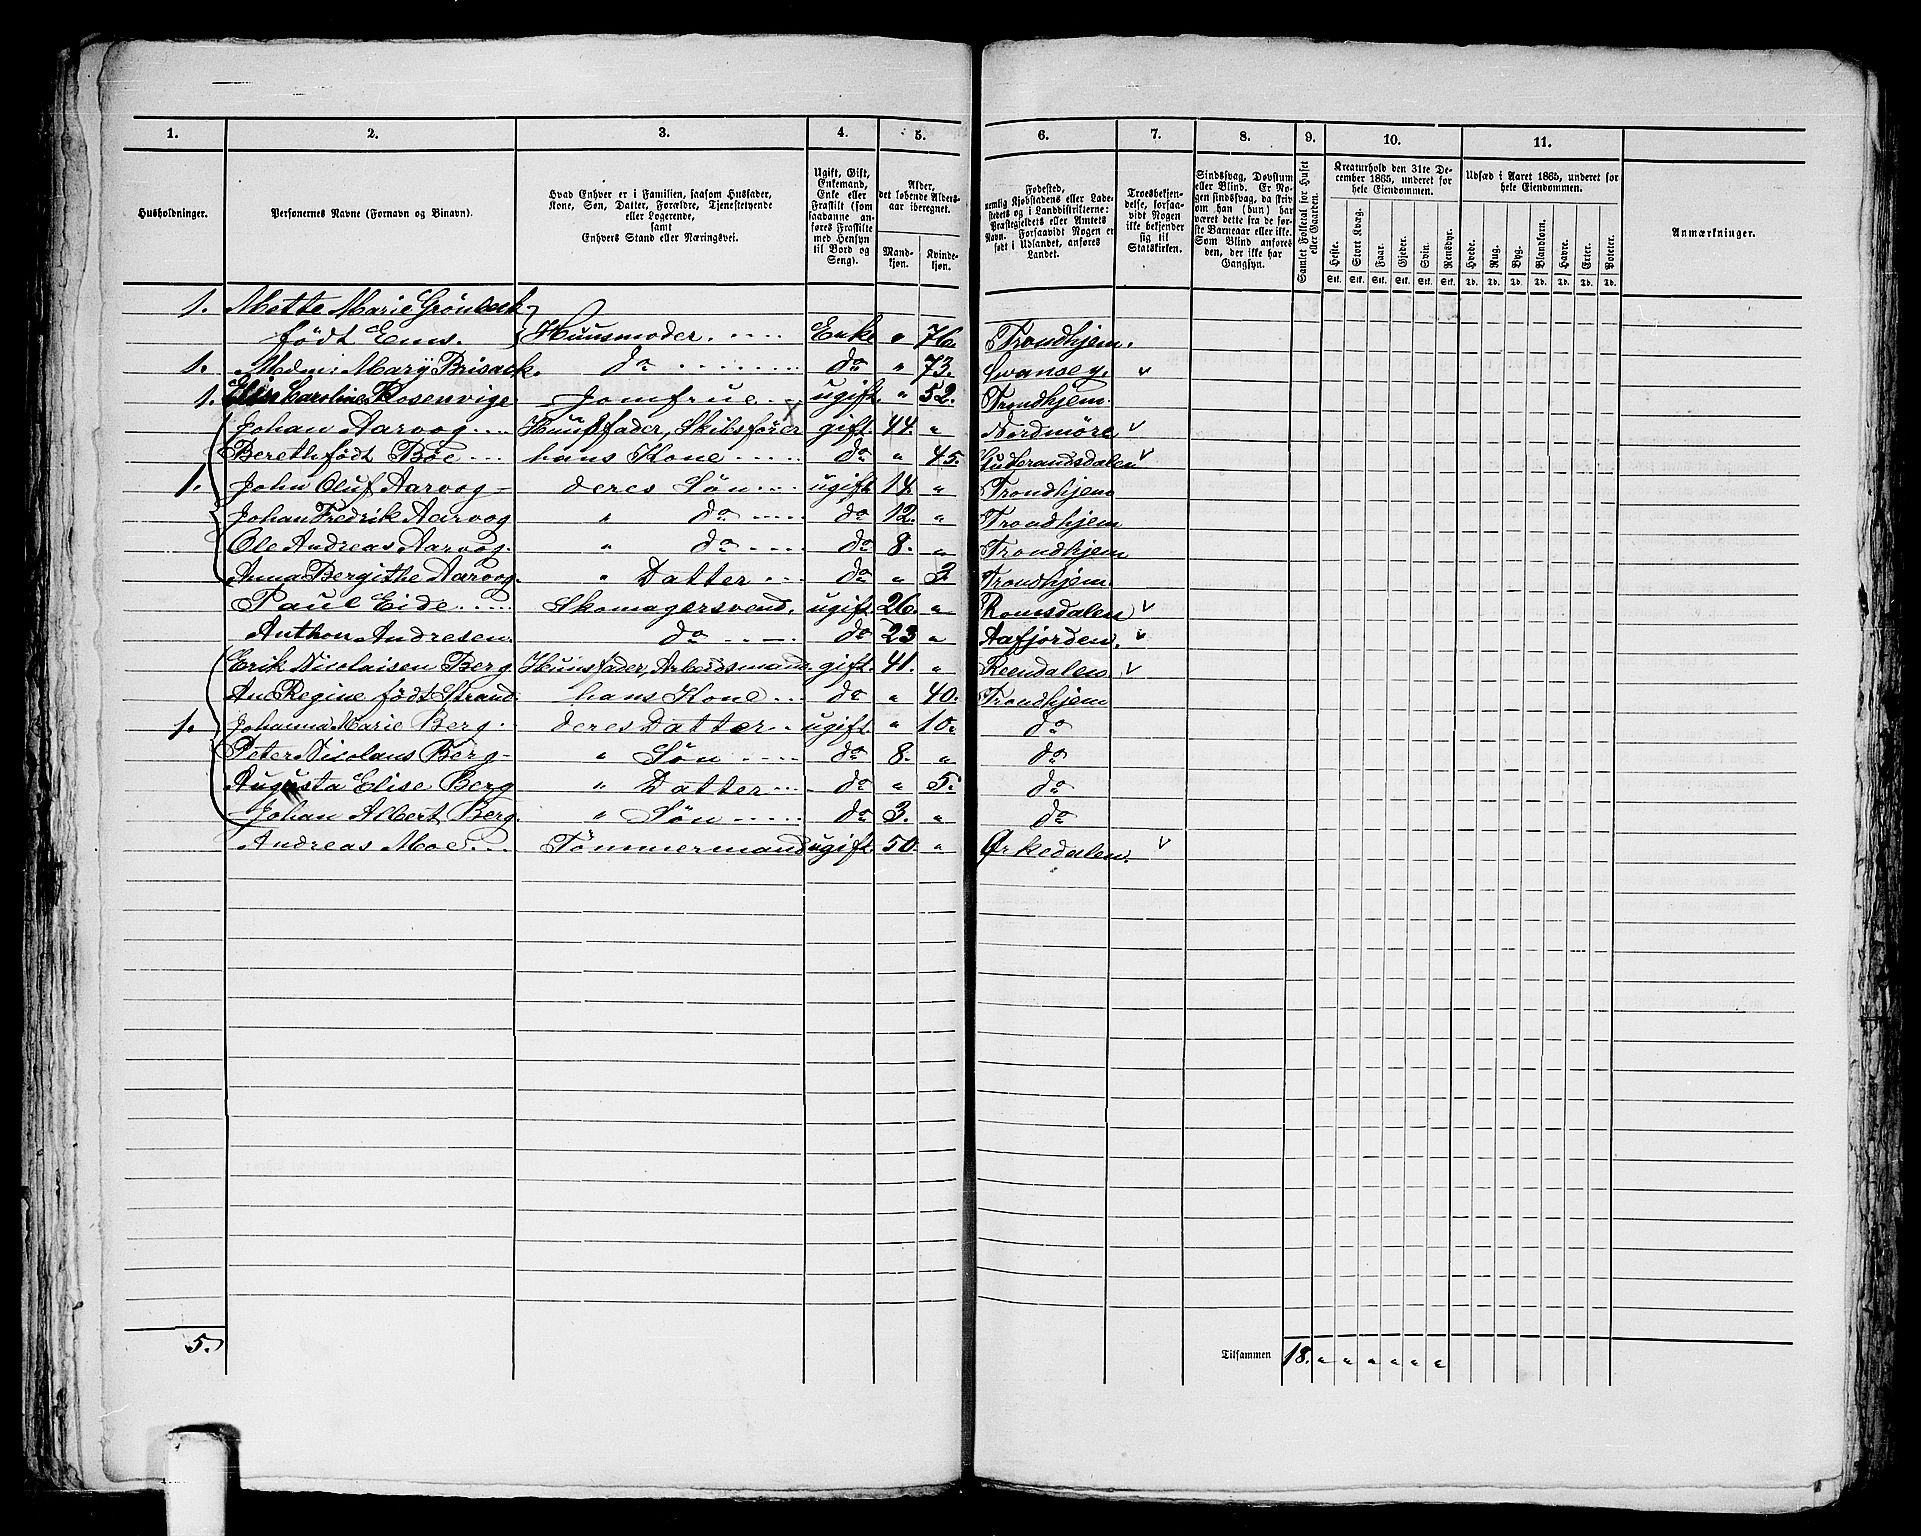 1. 2. 3. 4. 5. 6. 7. 8. 9. 10. 11.
Husholdninger.
Personernes Navne (Fornavn og Binavn).
Hvad Enhver er i Familien, saasom Husfader,
Kone, Søn, Datter, Forældre, Tjenestetyende
eller Logerende,
samt
Enhvers Stand eller Næringsvei.
Ugift, Gift,
Enkemand,
Enke eller
Fraskilt (som
saadanne an-
føres Fraskilte
med Hensyn
til Bord og
Seng).
Alder,
det løbende Alders-
aar iberegnet.
Mand-
kjøn.
Kvinde-
kjøn.
Fødested,
nemlig Kjøbstadens eller Lade-
stedets og i Landdistrikterne:
Præstegjeldets eller Amtets
Navn. Forsaavidt Nogen er
født i Udlandet, anføres
Landet.
Troesbekjen-
delse, forsaa-
vidt Nogen
ikke bekjender
sig til
Statskirken.
Sindssvag, Døvstum
eller Blind. Er No-
gen sindssvag, da skriv
om han (hun) har
været dette fra de før-
ste Barneaar eller ikke.
Som Blind anføres
den, der ikke har
Gangsyn.
Samlet Folketal for Huset
eller Gaarden.
Kreaturhold den 31te De-
cember 1865, underet for
hele Eiendommen.
Heste. Stort Kvæg. Faar. Gjeder. Svin. Rensdyr.
Stk. Stk. Stk. Stk. Stk. Stk.
Udsæd i Aaret 1865, underet for
hele Eiendommen.
Hvede. Rug. Byg. Blandkorn. Havre. Erter. Poteter.
Td. Td. Td. Td. Td. Td. Td.
Anmærkninger.
1. Mette Marie Grönbeck
født Enns. Huusmoder. Enke " 76. Trondhjem.
1. Mdme Mary Brisack. do do " 73. Svansey. v
1. Elen Caroline Rosenvige Jomfrue ugift. " 52. Trondhjem.
Johan Aarvog Huusfader, Skibsfører gift. 44. " Nordmöre v
Bereth født Böe hans Kone do " 45. Gudbrandsdalen v
1. John Oluf Aarvog deres Søn ugift 14 " Trondhjem
Johan Fredrik Aarvog " do do 12. " Trondhjem
Ole Andreas Aarvog. " do do 8. " Trondhjem
Anna Bergithe Aarvog. " Datter do " 3 Trondhjem.
Paul Eide Skomagersvend. ugift. 26. " Romsdalen v
Anthon Andresen. do do 23 " Aafjorden. v
Erik Nicolaisen Berg Huusfader, Arbeidsmand. gift. 41. " Reendalen v
An Regine født Strand hans Kone do " 40. Trondhjem
1. Johanna Marie Berg deres Datter ugift. " 10. do
Peter Nicolaus Berg " Søn do 8. " do
Augusta Elise Berg " Datter do " 5. do
Johan Albert Berg. " Søn do 3. " do
Andreas Moe. Tømmermand ugift 50. " Ørkedalen. v
5.
Tilsammen 18. " " " " " "